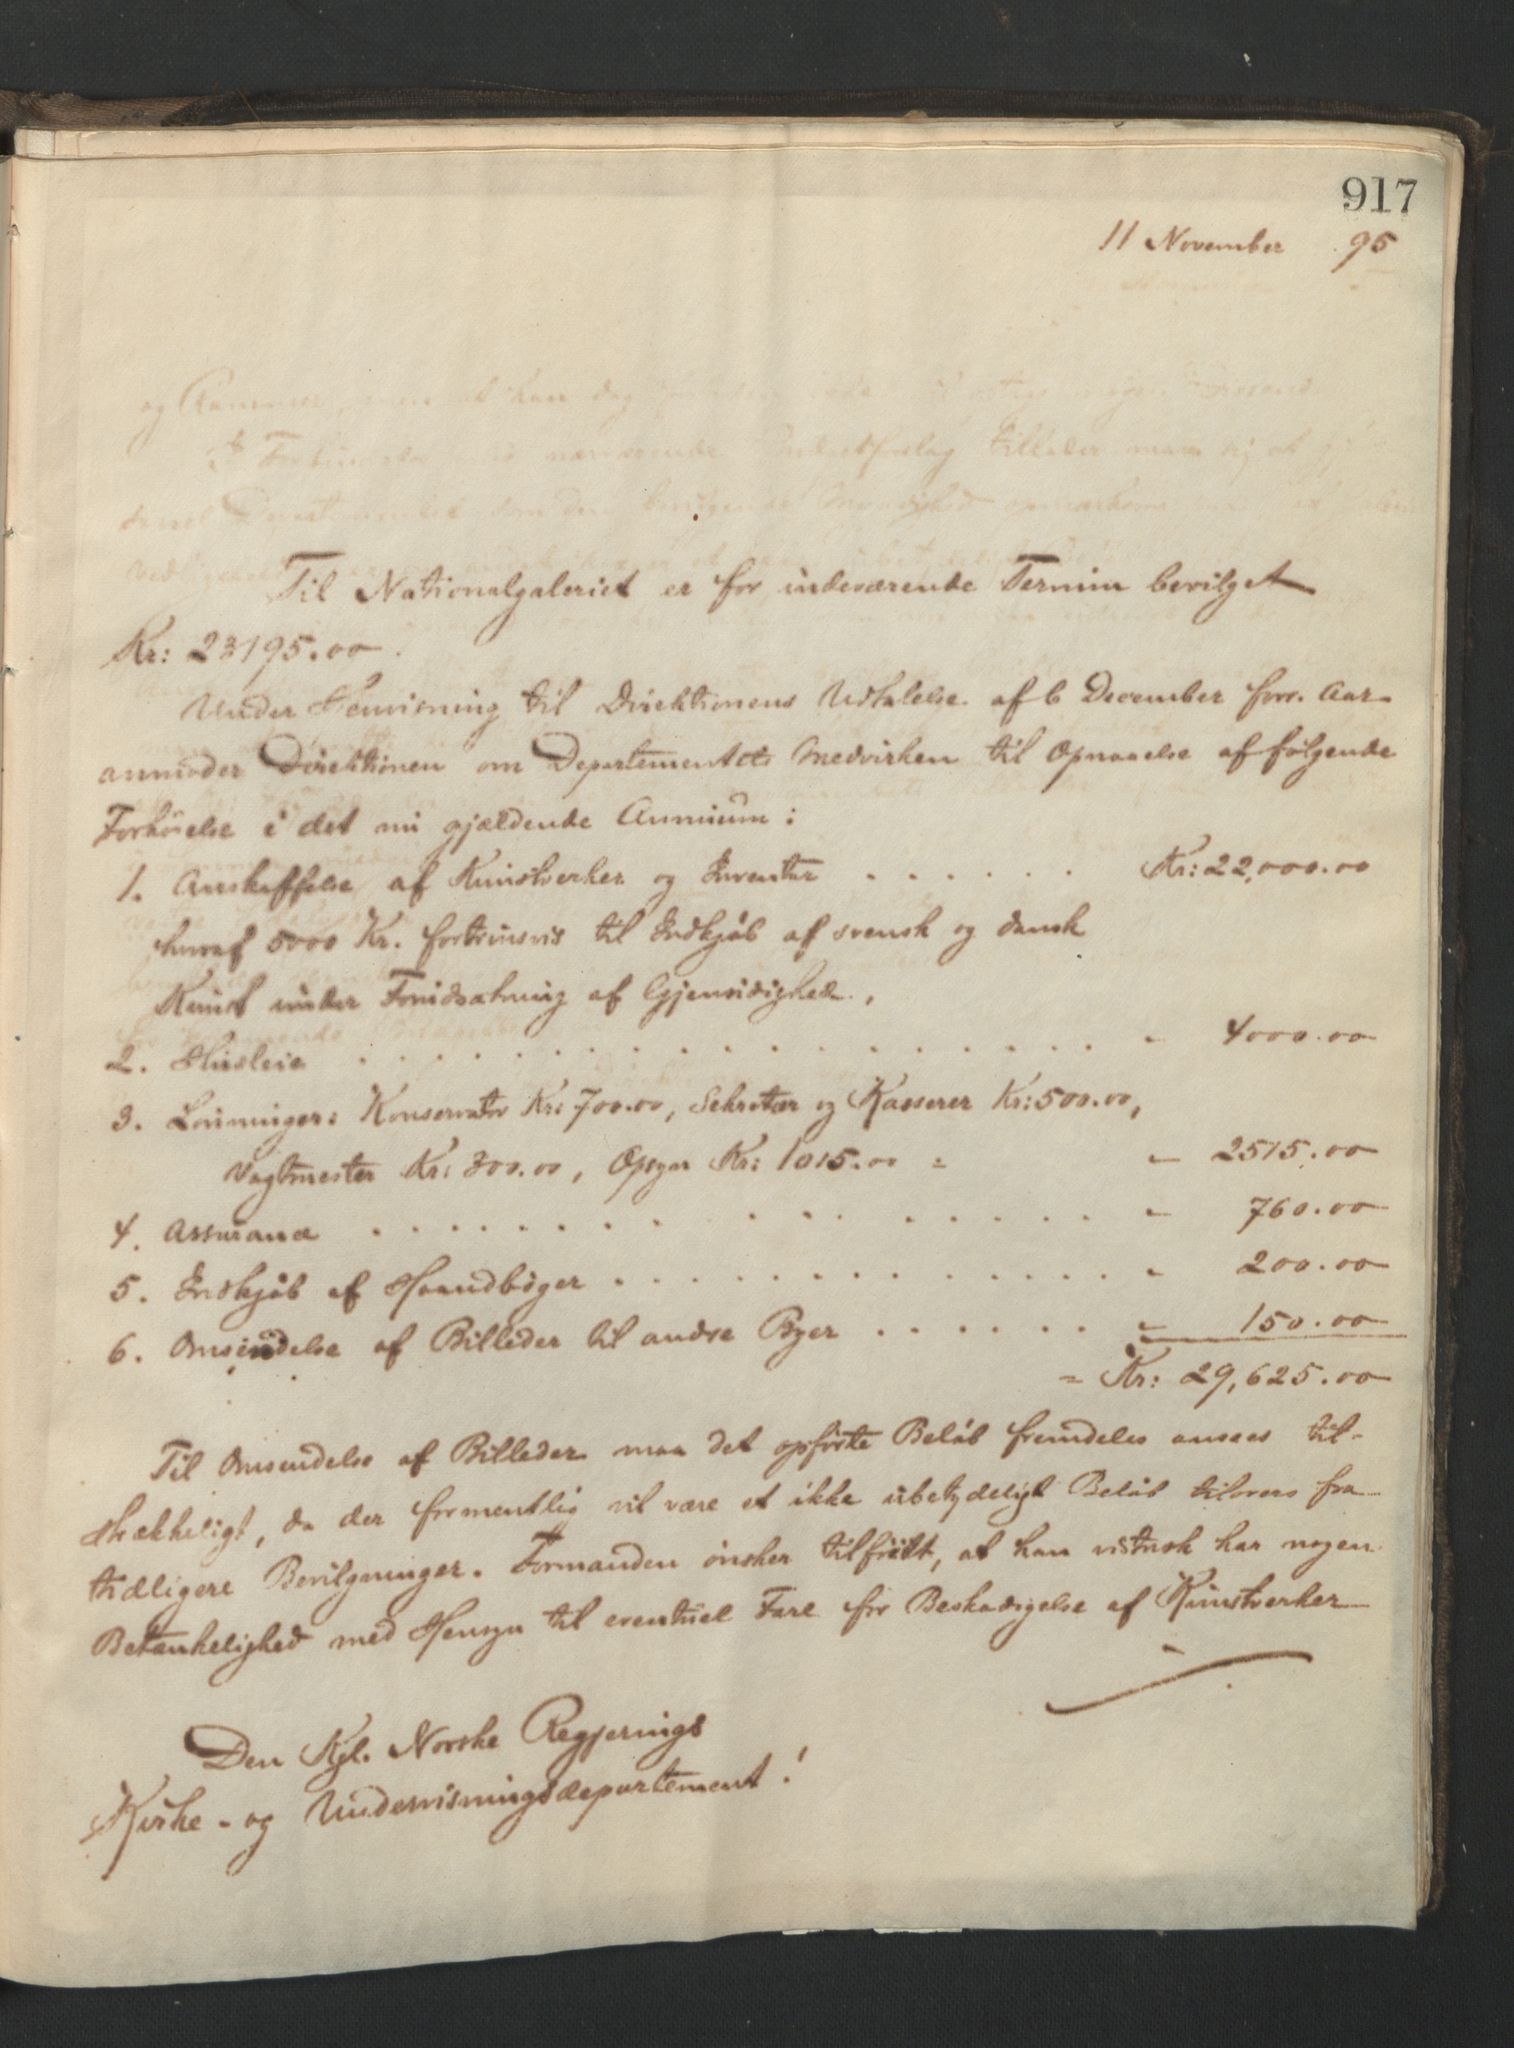 917
11 November 95
Til Nationalgaleriet er for indeværende Termin bevilget
Kr: 23195.00.
Under Henvisning til Direktionens Udtalelse af 6 December forr. Aar
anmoder Direktionen om Departementets Medvirken til Opnaaelse af følgende
Forhöielse i det nu gjældende Annuum:
1. Anskaffelse af Kunstverker og Inventar . . . . . . Kr: 22,000.00
hvoraf 5000 Kr. fortrinsvis til Indkjøb af svensk og dansk
Kunst under Forudsætning af Gjensidighed.,
2. Husleie . . . . . . . . . . . . . . . . . . . . - 4000.00
3. Lönninger: Konservator Kr: 700.00, Sekretær og Kasserer Kr: 500.00,
Vagtmester Kr: 300.00, Opsyn Kr: 1015.00 = - 2515.00
4. Assurance . . . . . . . . . . . . . . . . - 760.00
5. Indkjøb af Haandbøger . . . . . . . . . . . . . . - 200.00
6. Omsendelse af Billeder til andre Byer . . . . . . - 150.00
= Kr: 29,625.00
Til Omsendelse af Billeder maa det opførte Beløb fremdeles ansees til-
strækkeligt, da der formentlig vil være et ikke ubetydeligt Beløb tilovers fra
tidligere Bevilgninger. Formanden ønsker tilføiet, at han vistnok har nogen
Betænkelighed med Hensyn til eventuel Fare for Beskadigelse af Kunstverker
Den Kgl. Norske Regjerings
Kirke- og Undervisningsdepartement!